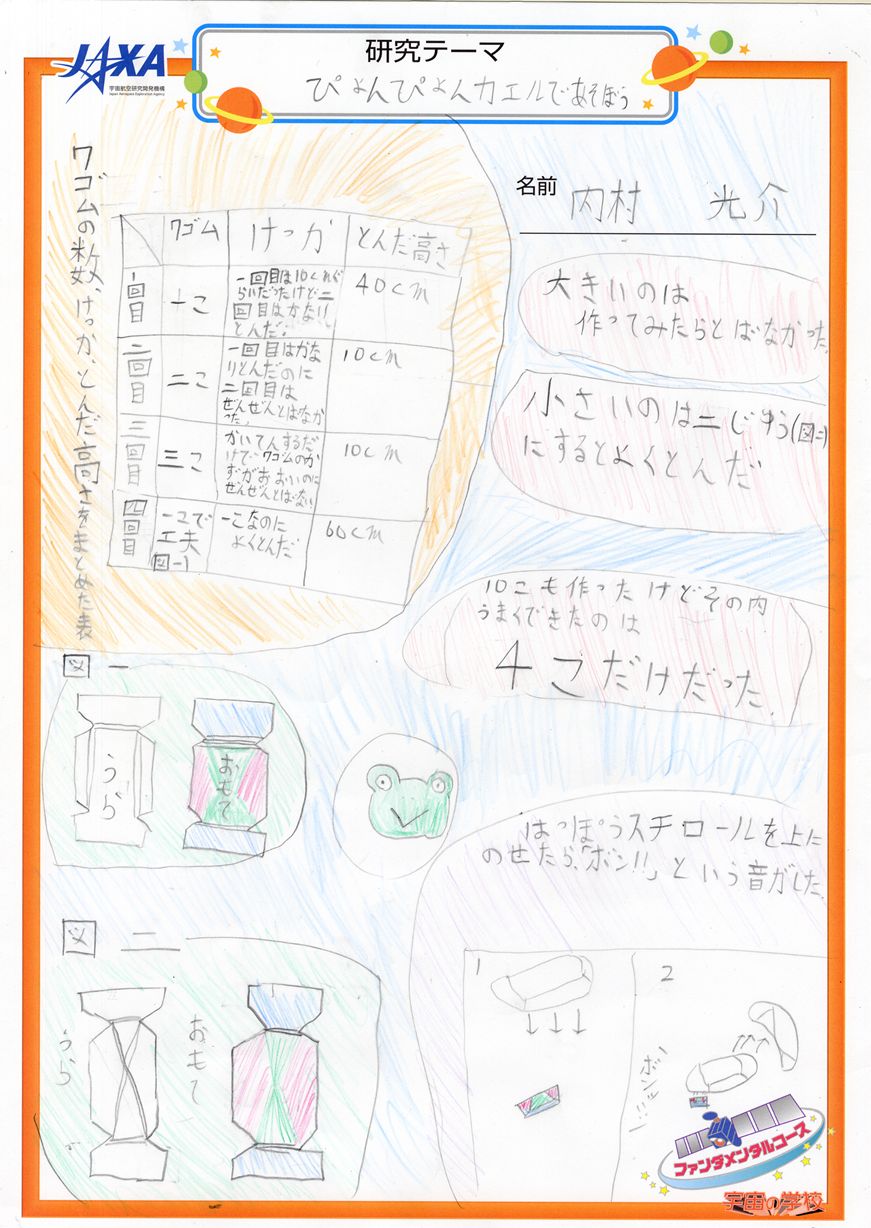 JAXA
宇宙航空研究開発機構
Japan Aerospace Exploration Agency
研究テーマ
ぴょんぴょんカエルであそぼう
名前 内村 光介
ワゴムの数、けっか、とんだ高さをまとめた表
ワゴム けっか とんだ高さ
一回目
一こ
一回目は10cmぐ
らいだったけど二
回目はかなり
とんだ。
40cm
二回目
二こ
一回目はかな
りとんだのに
二回目は
ぜんぜんとばなか
った。
10cm
三回目
三こ
かいてんするだ
けで、ワゴムのか
ずがおおいのに
ぜんぜんとばない
10cm
四回目
一コで
工夫
(図一)
一こなのに
よくとんだ
60cm
大きいのは
作ってみたらとばなかった。
小さいのは二じゅう(図二)
にするとよくとんだ
10こも作ったけどその内
うまくできたのは
4こだけだった。
図一
うら
おもて
はっぽうスチロールを上に
のせたら、「ボン!!」という音がした。
図二
うら
おもて
1
2
ボンッ!!
ファンダメンタルコース
宇宙の学校